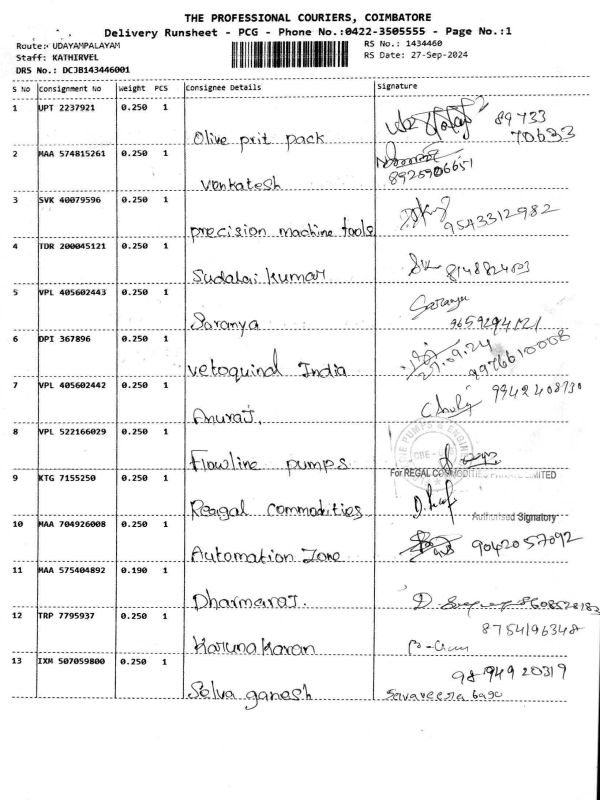 THE PROFESSIONAL COURIERS, COIMBATORE
Delivery Runsheet - PCG - Phone No.:0422-3505555 - Page No.:1
Route:- UDAYAMPALAYAM
RS No.: 1434460
Staff: KATHIRVEL
RS Date: 27-Sep-2024
DRS No.: DCJB143446001
S No Consignment No Weight PCS Consignee Details Signature
1 UPT 2237921 0.250 1
89733
Olive prit pack 70633
2 MAA 574815261 0.250 1
Venkatesh 8925906651
3 SVK 40079596 0.250 1
precision machine tools 9543312982
4 TDR 200045121 0.250 1
Sudalai kumar
5 VPL 405602443 0.250 1
Saranya
Saranya
6 DPI 367896 0.250 1
27.09.24 9976610008
vetoquinal India
7 VPL 405602442 0.250 1
9942408730
Anuraj.
8 VPL 522166029 0.250 1
PUMPS & ENGINE
CBE
Flowline pumps
For REGAL COMMODITIES PRIVATE LIMITED
9 KTG 7155250 0.250 1
Reagal commodities
Authorised Signatory
10 MAA 704926008 0.250 1
9042057092
Automation Zone
11 MAA 575404892 0.190 1
Dharmaraj.
12 TRP 7795937 0.250 1
8754196348
Karunakaran
13 IXM 507059800 0.250 1
9894920319
Selva ganesh